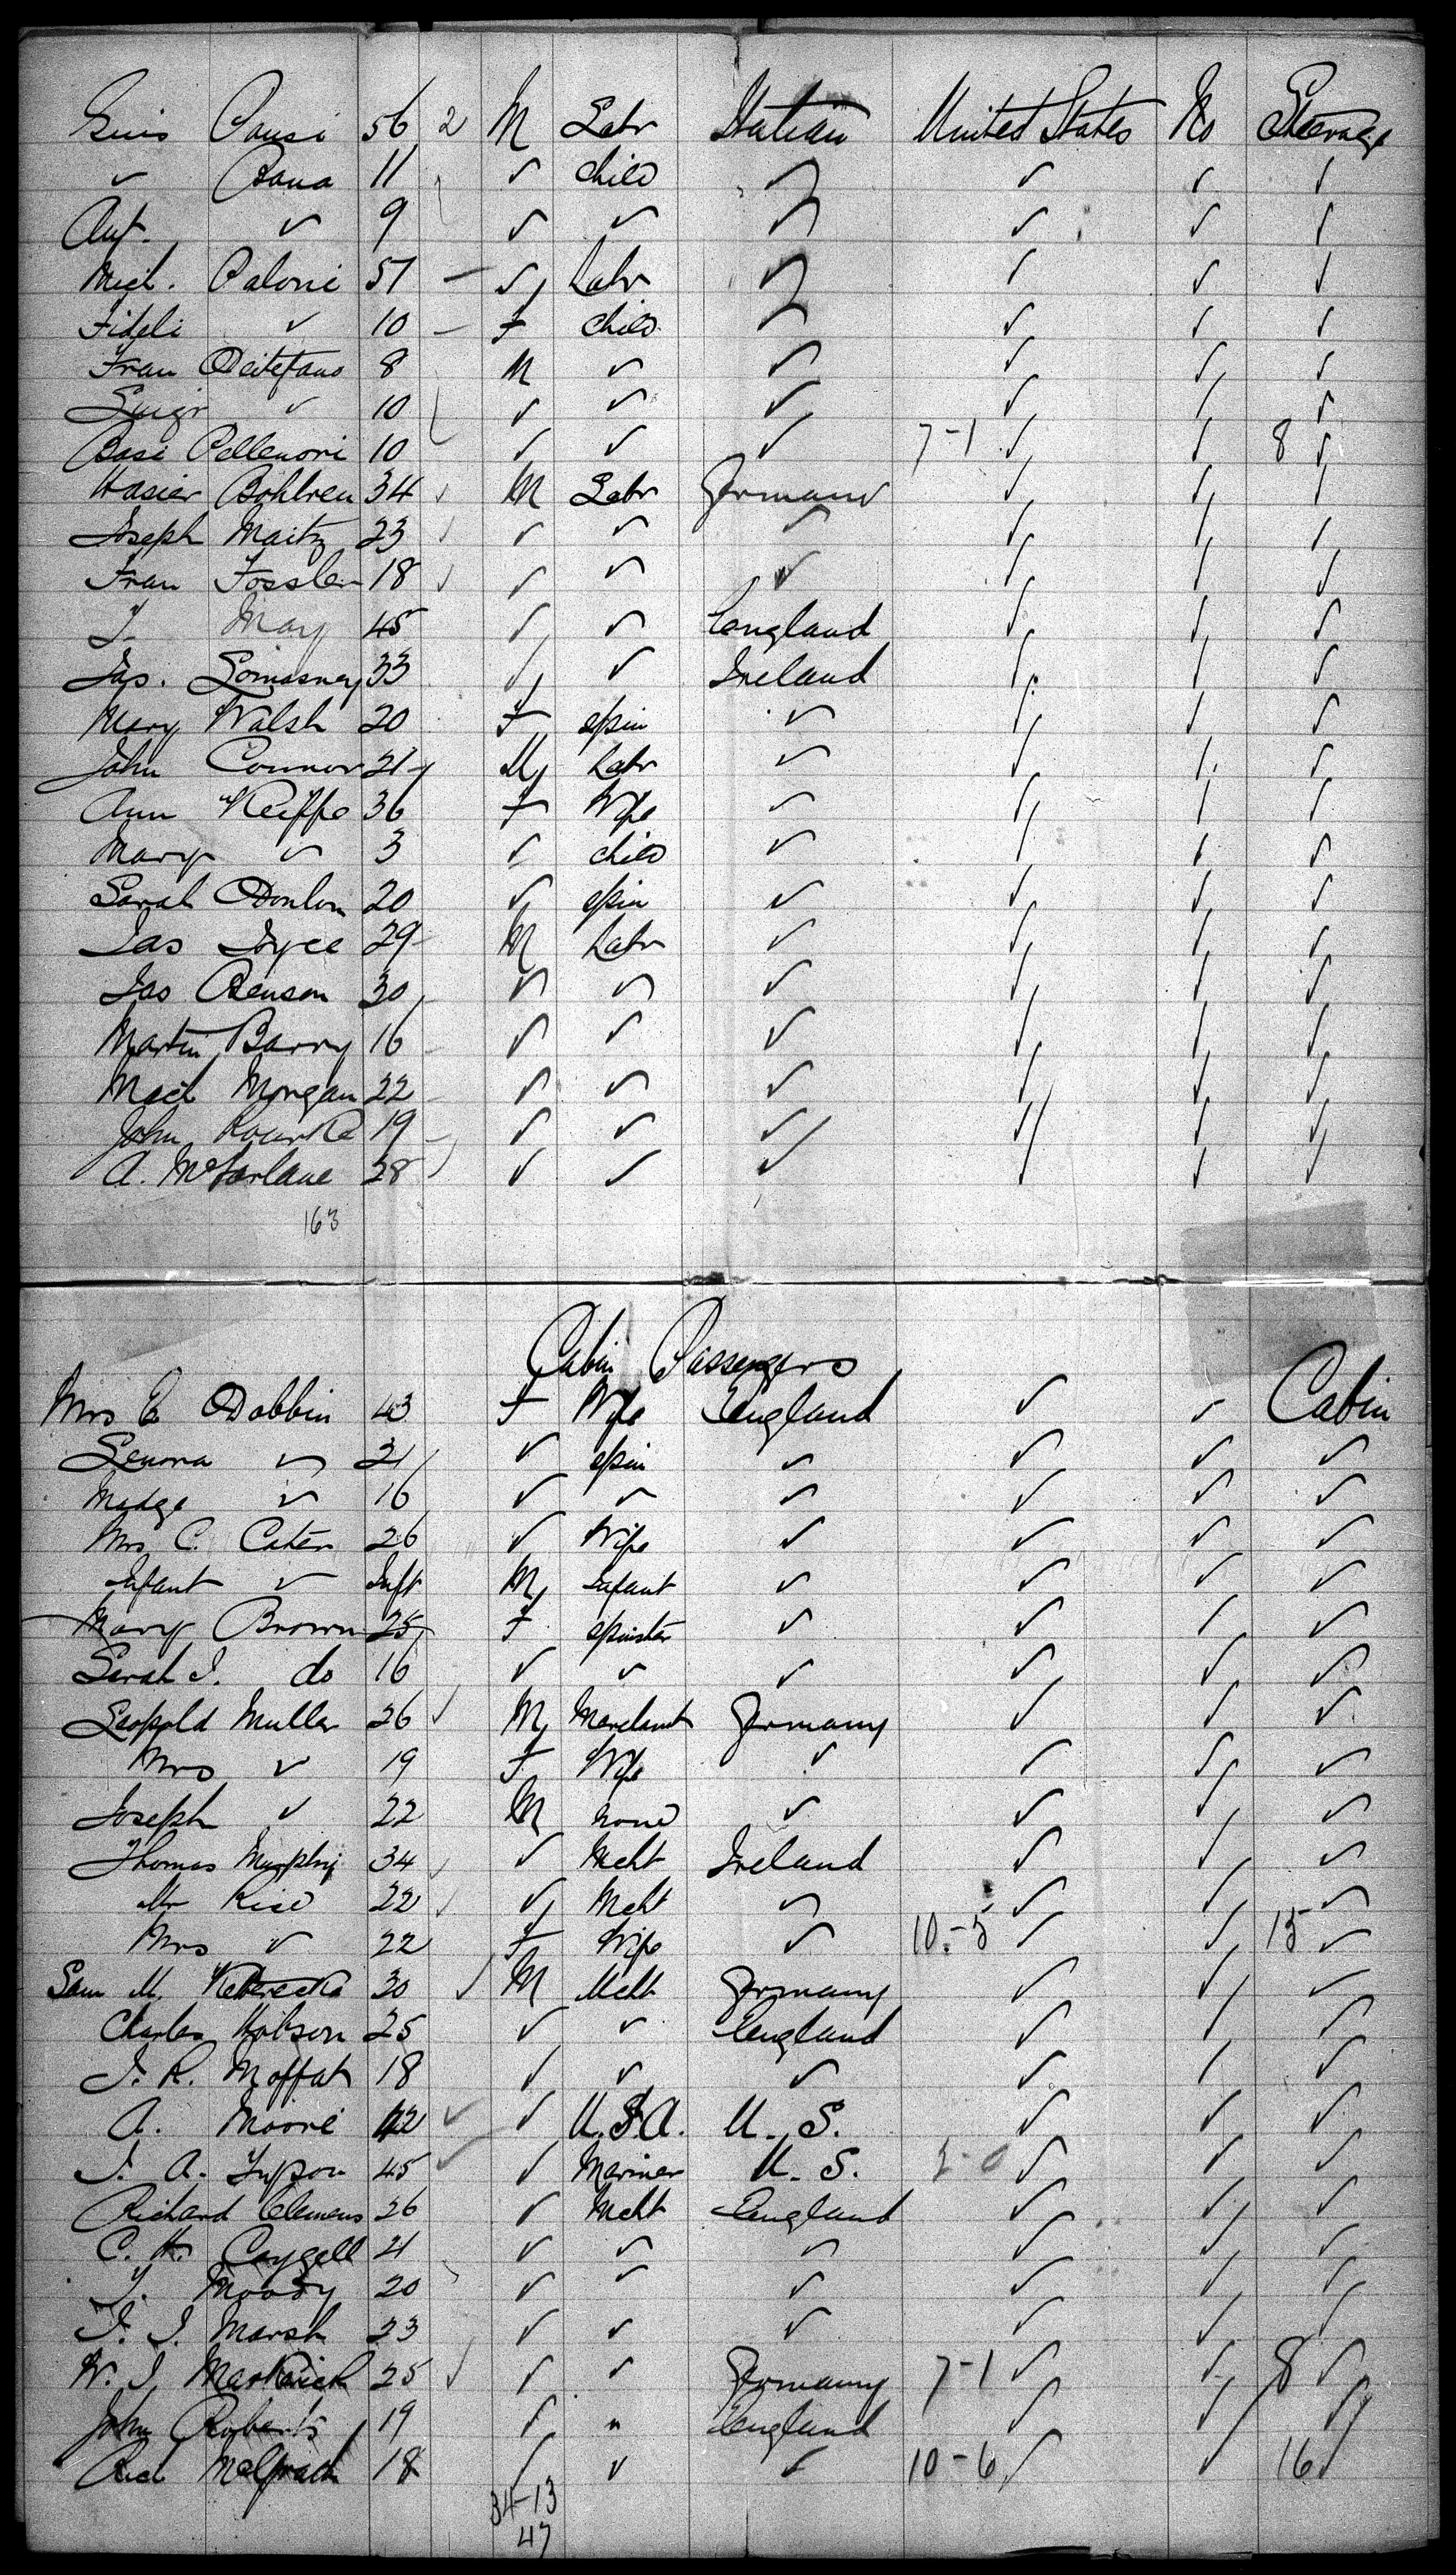 56 2 M Labr Italian United States No Steerage
✓ 11 ✓ child ✓ ✓ ✓ ✓
Ant. ✓ 9 ✓ ✓ ✓ ✓ ✓ ✓
Mich. 57 — ✓ Labr ✓ ✓ ✓ ✓
Fideli ✓ 10 — F child ✓ ✓ ✓ ✓
Fran 8 M ✓ ✓ ✓ ✓ ✓
Luigi ✓ 10 ✓ ✓ ✓ ✓ ✓ ✓
10 ✓ ✓ ✓ 7-1 ✓ ✓ 8 ✓
34 ✓ M Labr Germany ✓ ✓ ✓
Joseph Maitz 23 ✓ ✓ ✓ ✓ ✓ ✓ ✓
Fran Fossler 18 ✓ ✓ ✓ ✓ ✓ ✓ ✓
May 45 ✓ ✓ England ✓ ✓ ✓
Jas. Lomasney 33 ✓ ✓ Ireland ✓ ✓ ✓
Mary Walsh 20 F spin ✓ ✓ ✓ ✓
John Connor 21 M Labr ✓ ✓ ✓ ✓
Ann Keiffe 36 F Wife ✓ ✓ ✓ ✓
Mary ✓ 3 ✓ child ✓ ✓ ✓ ✓
Sarah Donlon 20 ✓ spin ✓ ✓ ✓ ✓
Jas Joyce 29 M Labr ✓ ✓ ✓ ✓
Jas Benson 30 ✓ ✓ ✓ ✓ ✓ ✓
Martin Barry 16 ✓ ✓ ✓ ✓ ✓ ✓
Mich Morgan 22 ✓ ✓ ✓ ✓ ✓ ✓
John Rourke 19 ✓ ✓ ✓ ✓ ✓ ✓
A. McFarlane 28 ✓ ✓ ✓ ✓ ✓ ✓
163
Cabin Passengers
Mrs E Dobbin 43 F Wife England ✓ ✓ Cabin
Lenora ✓ 21 ✓ spin ✓ ✓ ✓ ✓
Madge ✓ 16 ✓ ✓ ✓ ✓ ✓ ✓
Mrs C. Cater 26 ✓ Wife ✓ ✓ ✓ ✓
Infant ✓ Inft M Infant ✓ ✓ ✓ ✓
Mary Brown 25 F spinster ✓ ✓ ✓ ✓
Sarah J. do 16 ✓ ✓ ✓ ✓ ✓ ✓
Leopold Muller 26 ✓ M Merchant Germany ✓ ✓ ✓
Mrs ✓ 19 F Wife ✓ ✓ ✓ ✓
Joseph ✓ 22 M none ✓ ✓ ✓ ✓
Thomas Murphy 34 ✓ ✓ Mcht Ireland ✓ ✓ ✓
Mr Rice 22 ✓ ✓ Mcht ✓ ✓ ✓ ✓
Mrs ✓ 22 F Wife ✓ 10-5 ✓ ✓ 15 ✓
Sam M. 30 ✓ M Mcht Germany ✓ ✓ ✓
Charles Hobson 25 ✓ ✓ England ✓ ✓ ✓
J. R. Moffat 18 ✓ ✓ ✓ ✓ ✓ ✓
A. Moore 42 ✓ ✓ U.S.A. U. S. ✓ ✓ ✓
J. A. 45 ✓ ✓ Mariner U. S. 2-0 ✓ ✓ ✓
Richard Clemens 26 ✓ Mcht England ✓ ✓ ✓
C. H. Caygell 21 ✓ ✓ ✓ ✓ ✓ ✓
Moody 20 ✓ ✓ ✓ ✓ ✓ ✓
J. J. Marsh 23 ✓ ✓ ✓ ✓ ✓ ✓
W. J. 25 ✓ ✓ ✓ Germany 7-1 ✓ ✓ 8 ✓
John Roberts 19 ✓ " England ✓ ✓ ✓
Rich McGrath 18 ✓ ✓ ✓ 10-6 ✓ ✓ 16 ✓
34-13
47